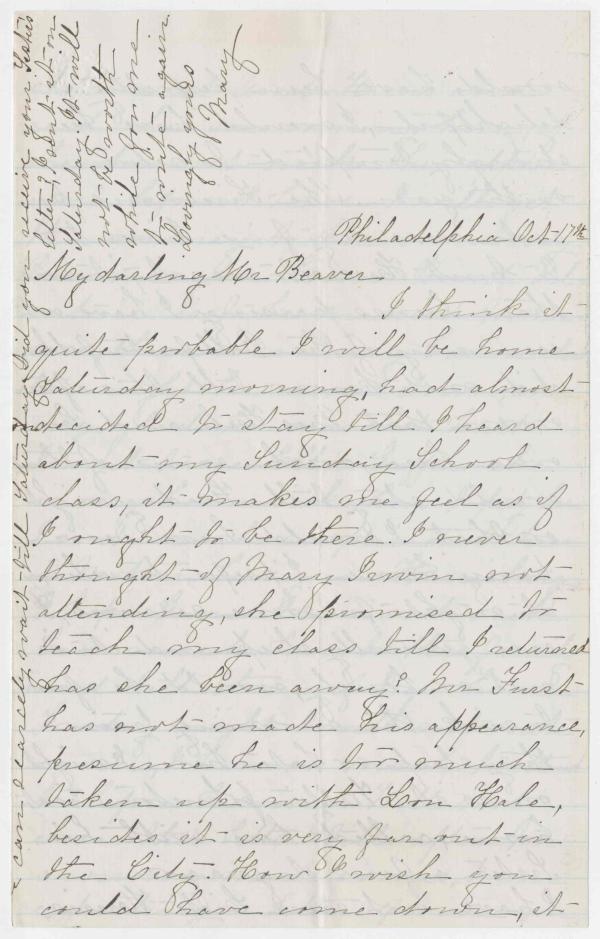 Philadelphia Oct 17th
My darling Mr Beaver
I think it
quite probable I will be home
Saturday morning, had almost
decided to stay till I heard
about my Sunday School
class, it makes me feel as if
I ought to be there. I never
thought of Mary Irwin not
attending, she promised to
teach my class till I returned
has she been away? Mr Furst
has not made his appearance,
presume he is too much
taken up with Lou Hale,
besides it is very far out in
the City. How I wish you
could have come down, it
I can scarcely wait till Saturday. Did you receive your Sister's
letter? I sent it on
Saturday. It will
not be worth
while for me
to write again
Lovingly yours
Mary